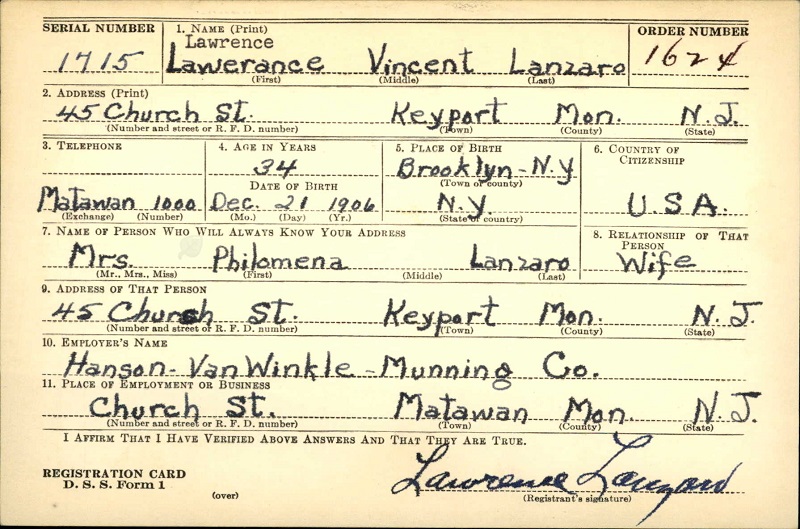 SERIAL NUMBER 1. NAME (Print) ORDER NUMBER
Lawrence
1715 Lawerance Vincent Lanzaro 1624
(First) (Middle) (Last)
2. ADDRESS (Print)
45 Church St. Keyport Mon. N.J.
(Number and street or R. F. D. number) (Town) (County) (State)
3. TELEPHONE 4. AGE IN YEARS 5. PLACE OF BIRTH 6. COUNTRY OF CITIZENSHIP
34 Brooklyn-N.Y
DATE OF BIRTH (Town or county)
Matawan 1000 Dec. 21 1906 N.Y. U.S.A.
(Exchange) (Number) (Mo.) (Day) (Yr.) (State or country)
7. NAME OF PERSON WHO WILL ALWAYS KNOW YOUR ADDRESS 8. RELATIONSHIP OF THAT PERSON
Mrs. Philomena Lanzaro Wife
(Mr., Mrs., Miss) (First) (Middle) (Last)
9. ADDRESS OF THAT PERSON
45 Church St. Keyport Mon. N.J.
(Number and street or R. F. D. number) (Town) (County) (State)
10. EMPLOYER'S NAME
Hanson-VanWinkle-Munning Co.
11. PLACE OF EMPLOYMENT OR BUSINESS
Church St. Matawan Mon. N.J.
(Number and street or R. F. D. number) (Town) (County) (State)
I AFFIRM THAT I HAVE VERIFIED ABOVE ANSWERS AND THAT THEY ARE TRUE.
REGISTRATION CARD
D. S. S. Form 1 Lawrence Lanzaro
(over) (Registrant's signature)